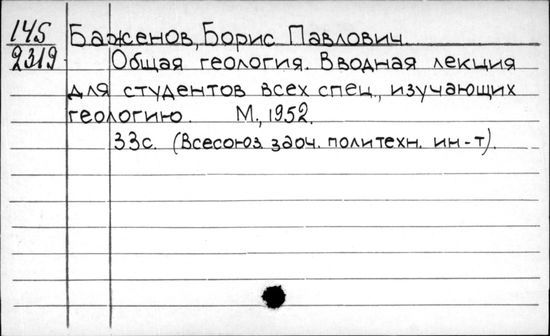 145
2319
Баженов, Борис Павлович.
Общая геология. Вводная лекция
для студентов всех спец., изучающих
геологию. М., 1952.
33с. (Всесоюз. заоч. политехн. ин-т).